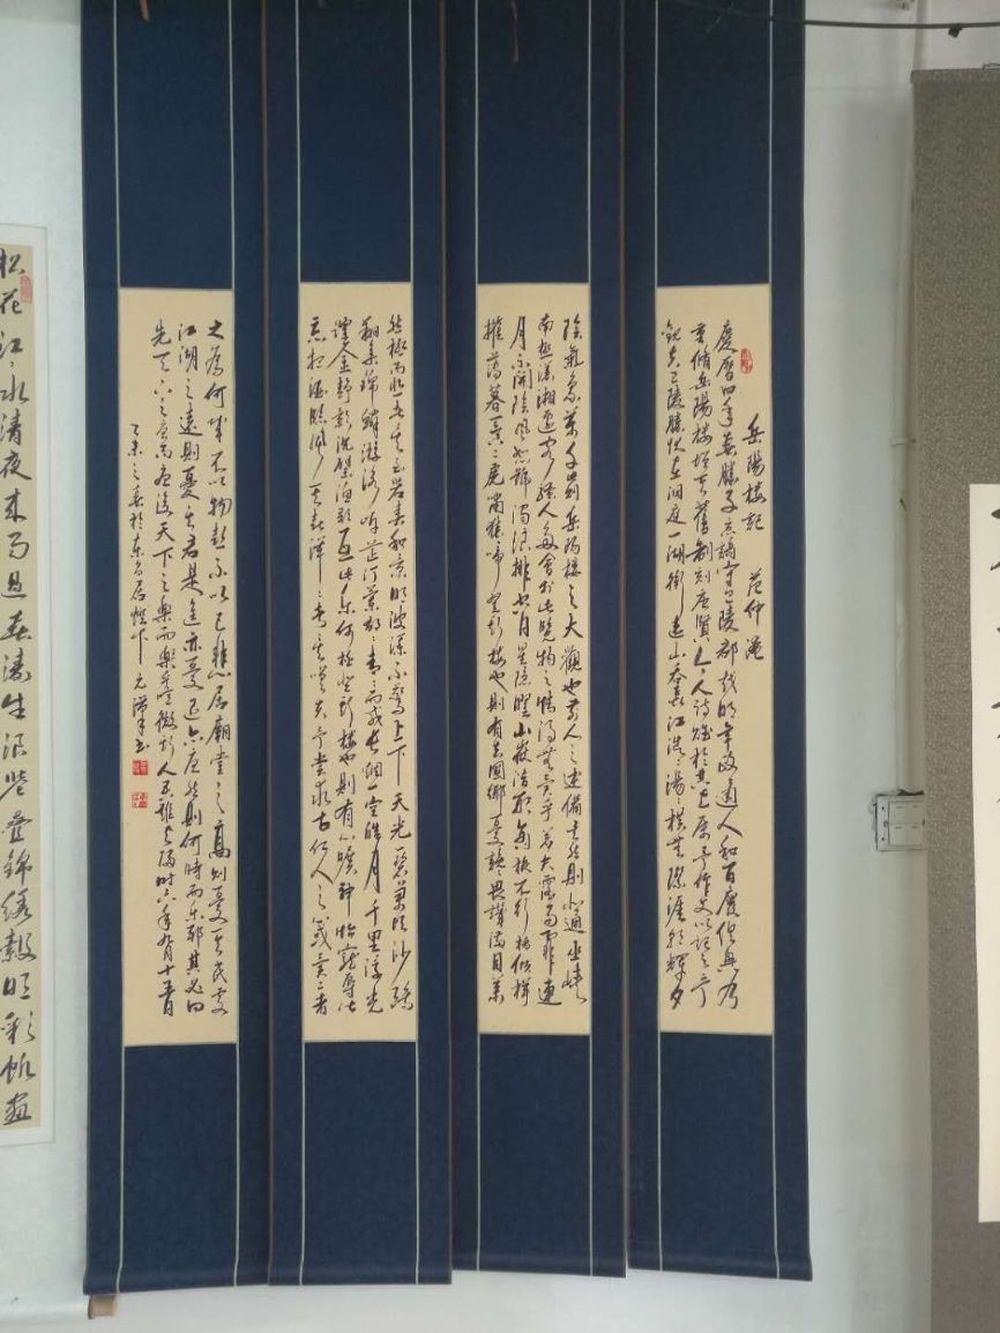 岳陽樓記 范仲淹
慶曆四年春滕子京謫守巴陵郡越明年政通人和百廢俱興乃
重脩岳陽樓增其舊制刻唐賢今人詩賦於其上屬予作文以記之予
觀夫巴陵勝狀在洞庭一湖銜遠山吞長江浩浩湯湯橫無際涯朝輝夕
陰氣象萬千此則岳陽樓之大觀也前人之述備矣然則北通巫峽
南極瀟湘遷客騷人多會於此覽物之情得無異乎若夫霪雨霏霏連
月不開陰風怒號濁浪排空日星隱曜山岳潛形商旅不行檣傾楫
摧薄暮冥冥虎嘯猿啼登斯樓也則有去國鄉憂讒畏譏滿目蕭
然極而悲者矣至若春和景明波瀾不驚上下天光一碧萬頃沙鷗
翔集錦鱗游泳岸芷汀蘭郁郁青青而或長烟一空皓月千里浮光
躍金靜影沉璧漁歌互答此樂何極登斯樓也則有心曠神怡寵辱皆
忘把酒臨風其喜洋洋者矣嗟夫予嘗求古仁人之心或異二者
之為何哉不以物喜不以己悲居廟堂之高則憂其民處
江湖之遠則憂其君是進亦憂退亦憂然則何時而樂耶其必曰
先天下之憂而憂後天下之樂而樂噫微斯人吾誰與歸時六年九月十五日
乙未之春於
松花江水清夜來雨過春濤生浪花疊錦綉縠明彩帆畫